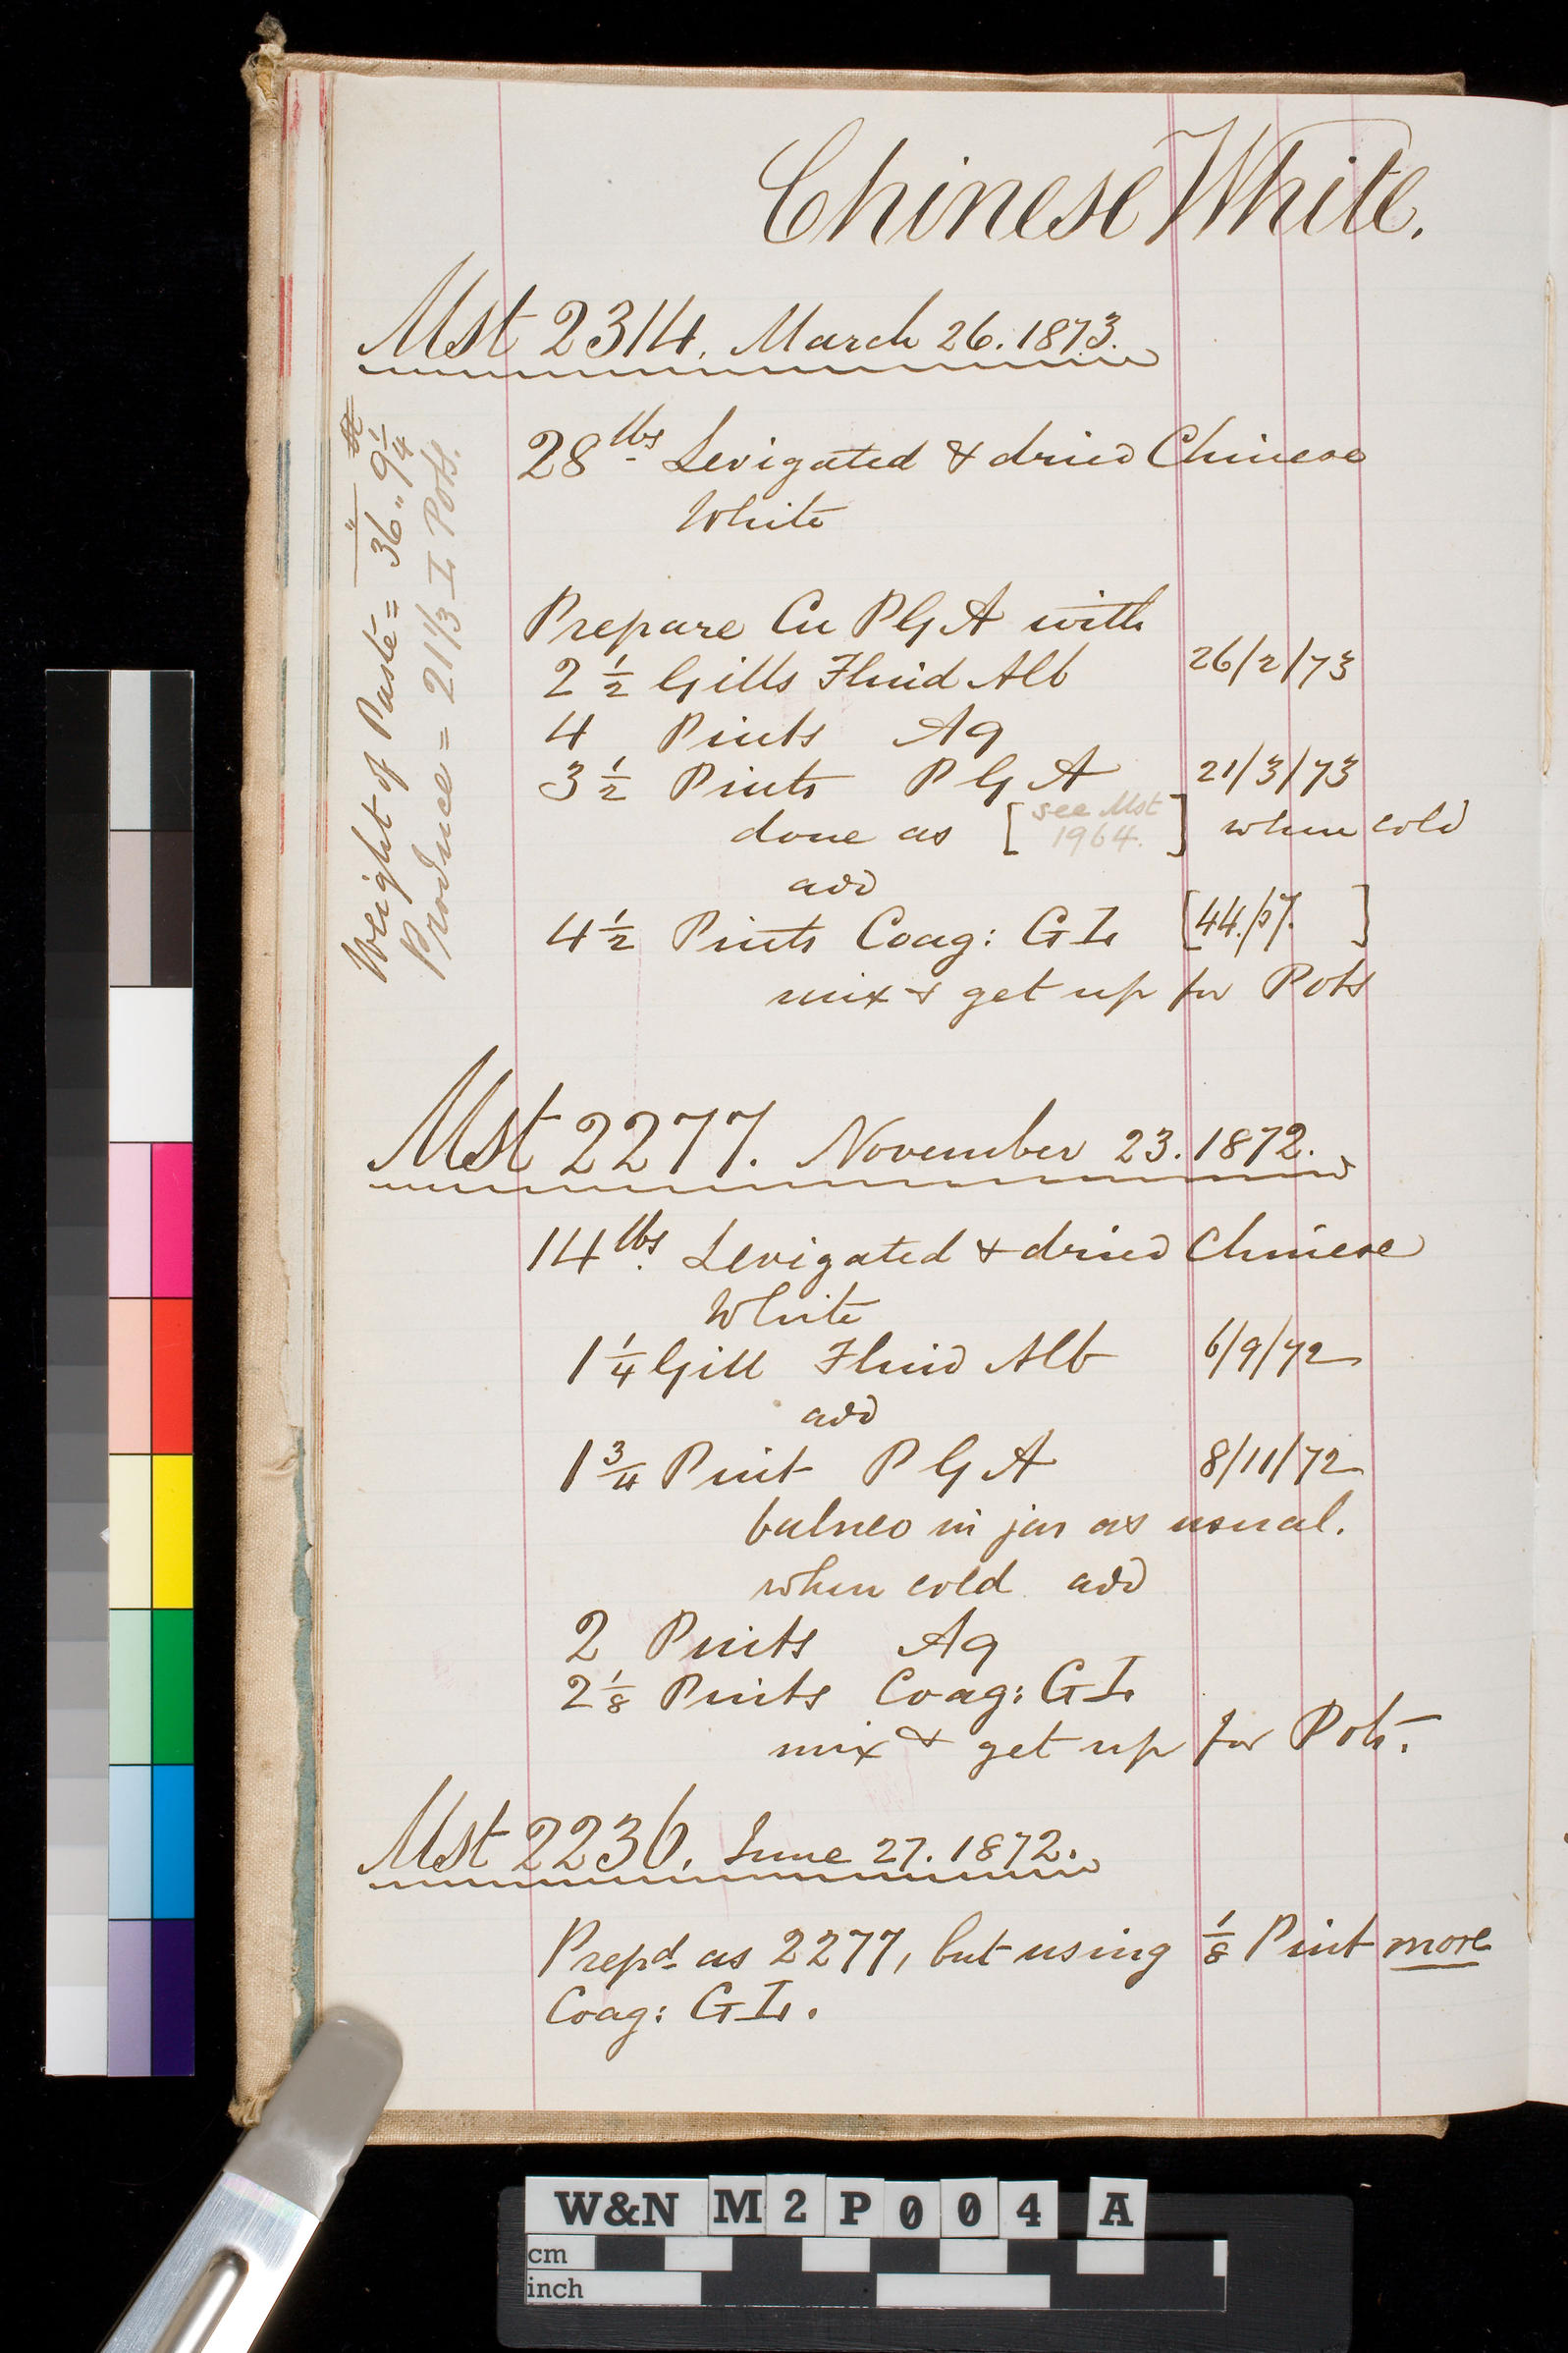 Chinese White.
Mst 2314. March 26. 1873.
28 lbs Levigated & dried Chinese
White
Prepare Cu P G A with
2 1/2 Gills Fluid Alb 26/2/73
4 Pints Aq
3 1/2 Pints P G A 21/3/73
done as [see Mst
1964.] when cold
add
4 1/2 Pints Coag: GL [44./57. ]
mix & get up for Pots
Weight of Paste = 36 " 9 1/4
Produce = 21 1/3 L Pots.
Mst 2277. November 23. 1872.
14 lbs. Levigated & dried Chinese
White
1 1/4 Gill Fluid Alb 6/9/72
add
1 3/4 Pint P G A 8/11/72
balneo in jar as usual.
when cold add
2 Pints Aq
2 1/8 Pints Coag: GL
mix & get up for Pots.
Mst 2236. June 27. 1872.
Prepd as 2277, but using 1/8 Pint more
Coag: GL.
W&N M2P004 A
cm
inch